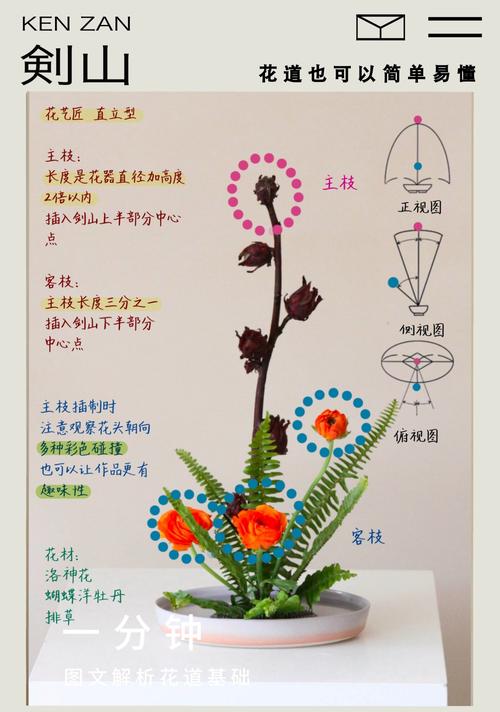 KEN ZAN
剣山
花道也可以简单易懂
花艺匠 直立型
主枝：
长度是花器直径加高度
2倍以内
插入剑山上半部分中心
点
客枝：
主枝长度三分之一
插入剑山下半部分
中心点
主枝插制时
注意观察花头朝向
多种彩色碰撞
也可以让作品更有
趣味性
花材：
洛神花
蝴蝶洋牡丹
排草
主枝
客枝
正视图
侧视图
俯视图
一分钟
图文解析花道基础